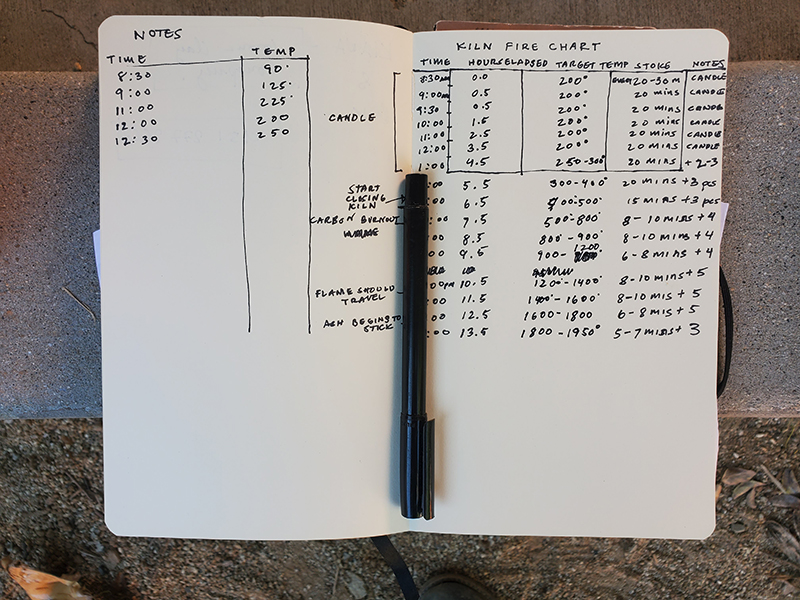 NOTES
TIME TEMP
8:30 90°
9:00 125°
11:00 225°
12:00 200
12:30 250
KILN FIRE CHART
TIME HOURS ELAPSED TARGET TEMP STOKE NOTES
8:30AM 0.0 200° 20-30m CANDLE
9:00AM 0.5 200° 20 mins CANDLE
9:30 0.5 200° 20 mins CANDLE
10:00 1.5 200° 20 mins CANDLE
11:00 2.5 200° 20 mins CANDLE
12:00 3.5 200° 20 mins CANDLE
1:00 4.5 250-300° 20 mins + 2-3
CANDLE
:00 5.5 300-400° 20 mins +3 pcs
START CLOSING KILN
:00 6.5 400-500° 15 mins +3 pcs
CARBON BURNOUT
:00 7.5 500-800° 8-10 mins +4
:00 8.5 800-900° 8-10 mins +4
:00 9.5 900-1200 6-8 mins +4
:00pm 10.5 1200-1400° 8-10 mins +5
FLAME SHOULD TRAVEL
:00 11.5 1400-1600° 8-10 mis +5
:00 12.5 1600-1800 6-8 mis +5
ASH BEGINS TO STICK
:00 13.5 1800-1950° 5-7 mins + 3